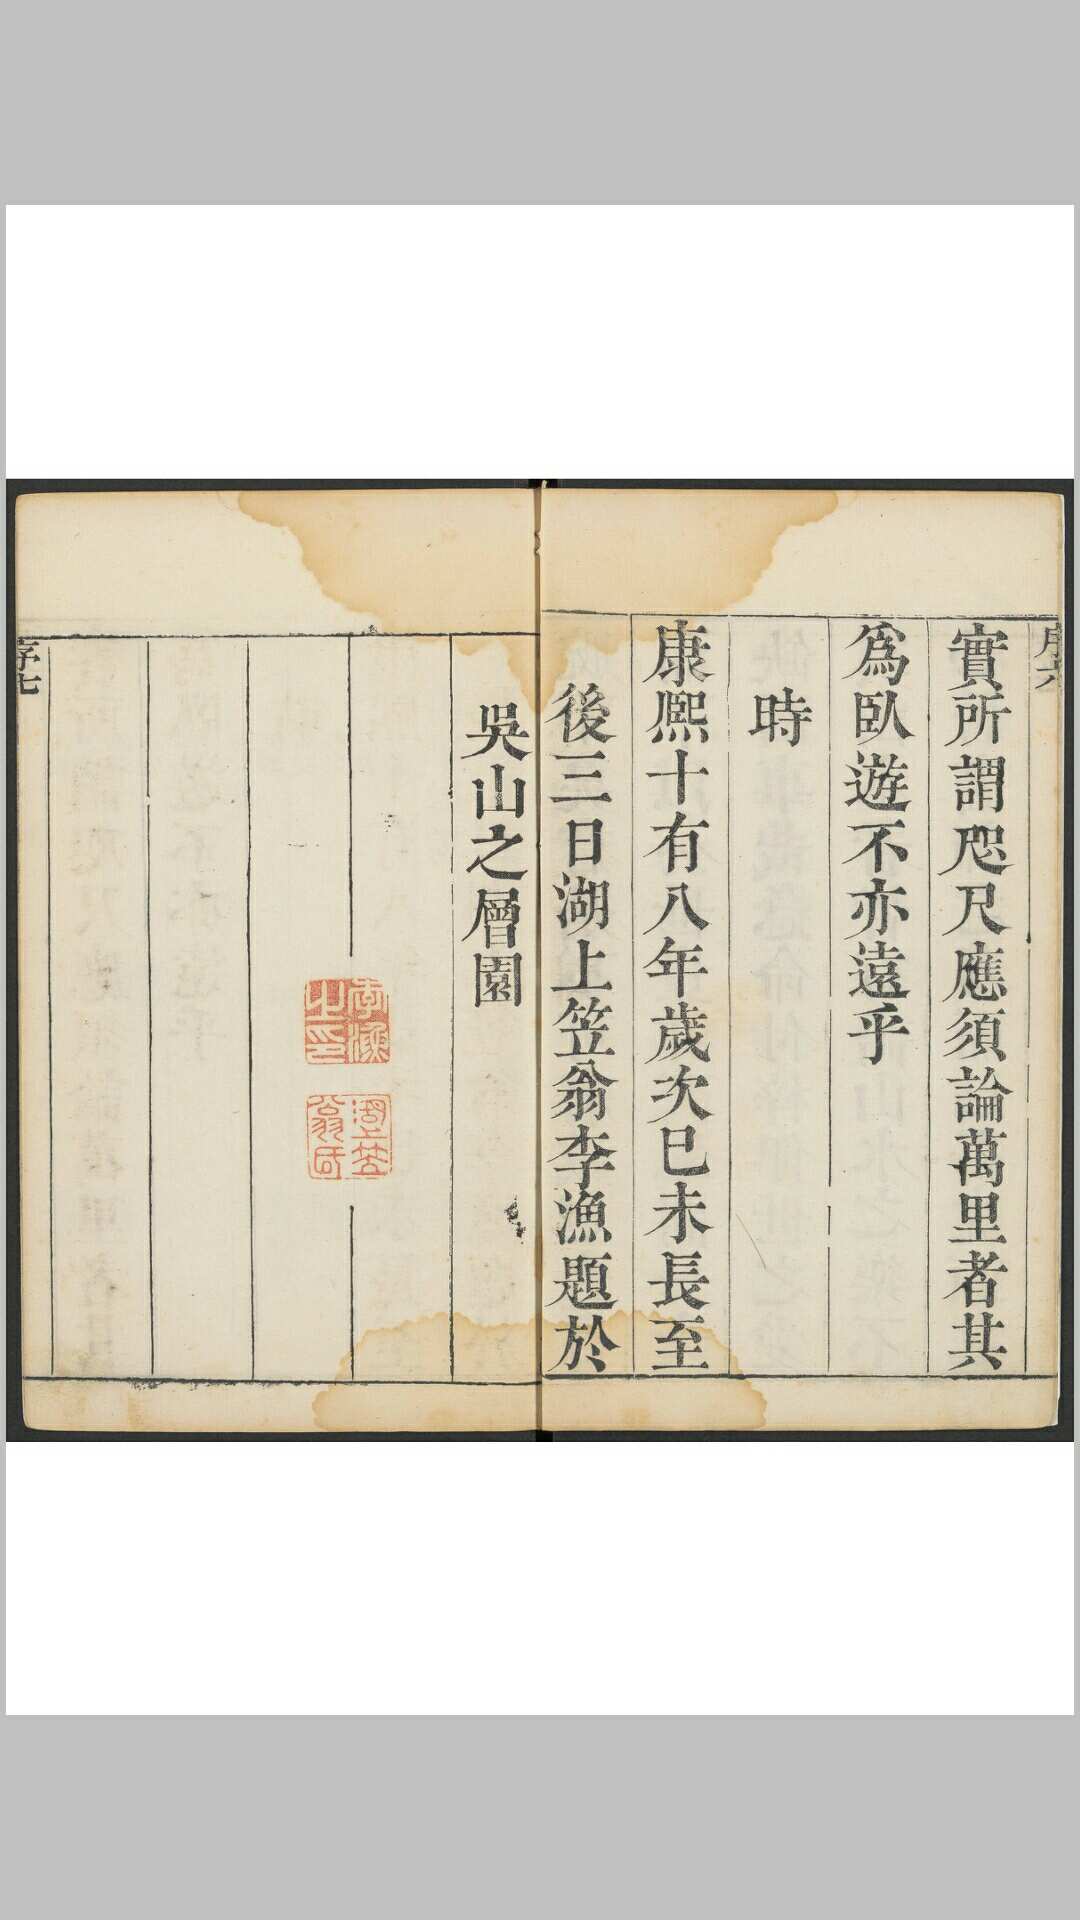 序六
實所謂咫尺應須論萬里者其
爲臥遊不亦遠乎
時
康熙十有八年歲次已未長至
後三日湖上笠翁李漁題於
吳山之層園
李漁
之印
湖上笠
翁氏
序七